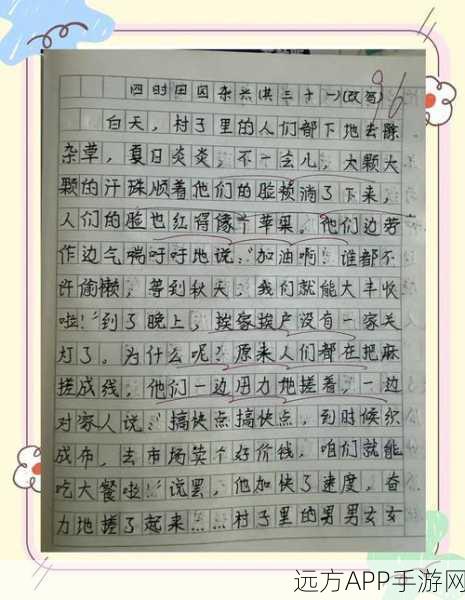 四时田园杂兴(其三十一)(改写)
96
白天，村子里的人们都下地去除
杂草，夏日炎炎，不一会儿，大颗大
颗的汗珠顺着他们的脸颊淌了下来，
人们的脸也红得像个苹果。他们边劳
作边气喘吁吁地说：“加油啊！谁都不
许偷懒，等到秋天，我们就能大丰收
啦！”到了晚上，挨家挨户没有一家关
灯了。为什么呢？原来人们都在把麻
搓成线，他们一边用力地搓着，一边
对家人说：“搞快点搞快点，到时候织
成布，去市场卖个好价钱，咱们就能
吃大餐啦！”说罢，他加快了速度，奋
力地搓了起来……村子里的男男女女
远方APP手游网